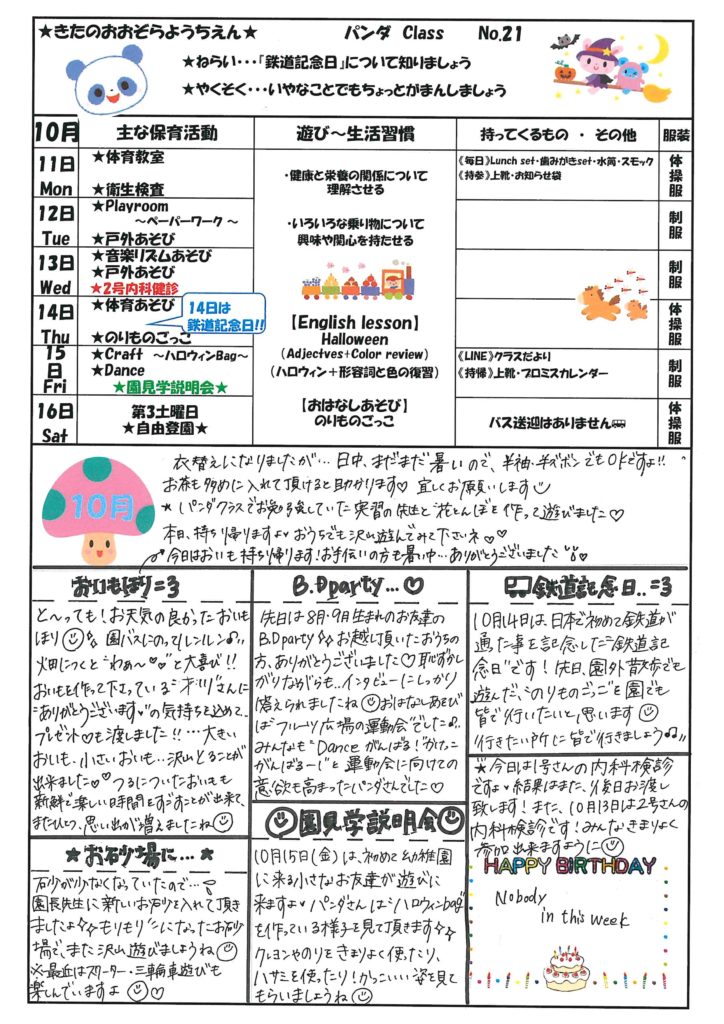 ★きたのおおぞらようちえん★ パンダ Class No.21
★ねらい・・・「鉄道記念日」について知りましょう
★やくそく・・・いやなことでもちょっとがまんしましょう
10月 主な保育活動 遊び～生活習慣 持ってくるもの ・ その他 服装
11日 Mon
★体育教室
★衛生検査
《毎日》Lunch set・歯みがきset・水筒・スモック
《持参》上靴・お知らせ袋
体操服
12日 Tue
★Playroom
～ペーパーワーク～
★戸外あそび
制服
13日 Wed
★音楽リズムあそび
★戸外あそび
★2号内科健診
制服
14日 Thu
★体育あそび
★のりものごっこ
14日は
鉄道記念日!!
体操服
15日 Fri
★Craft ～ハロウィンBag～
★Dance
★園見学説明会★
《LINE》クラスだより
《持帰》上靴・プロミスカレンダー
制服
16日 Sat
第3土曜日
★自由登園★
バス送迎はありません
体操服
・健康と栄養の関係について
理解させる
・いろいろな乗り物について
興味や関心を持たせる
【English lesson】
Halloween
(Adjectves+Color review)
(ハロウィン＋形容詞と色の復習)
【おはなしあそび】
のりものごっこ
10月
衣替えになりましたが… 日中、まだまだ暑いので、半袖・半ズボンでもOKですよ!!
お茶も多めに入れて頂けると助かります♡ 宜しくお願いします
★パンダクラスでお勉強していた実習の先生と"花とんぼ"を作って遊びました♡
本日、持ち帰りますよ♥おうちでも沢山遊んでみて下さいネ♡
今日はおいも持ち帰ります!お手伝いの方も暑い中…ありがとうございました
おいもほり=3
と～っても!お天気の良かったおいも
ほり 園バスにのってルンルン♪
畑につくと"わぁ～♡♡"と大喜び!!
おいもを作って下さっている さんに
"ありがとうございます"の気持ちを込めて
プレゼント♡も渡しました!!…大きい
おいも、小さいおいも…沢山とることが
出来ました♡♡つるについたおいもも
新鮮で楽しい時間をすごすことが出来て、
またひとつ、思い出が増えましたね
B.D party…♡
先日は8月・9月生まれのお友達の
B.D party お越し頂いたおうちの
方、ありがとうございました♡恥ずかし
がりながらも…インタビューにしっかり
答えられましたね おはなしあそび
は"フルーツ広場の運動会"でした♪
みんなも"Danceがんばる!""かけっこ
がんばるー!"と運動会に向けての
意欲も高まったパンダさんでした♡
鉄道記念日..=3
10月14日は日本で初めて鉄道が
通った事を記念した"鉄道記
念日"です!先日、園外散歩でも
遊んだ、"のりものごっこ"を園でも
皆で行いたいと思います
行きたい所に皆で行きましょう♪♪
★今日は1号さんの内科検診
ですよ♥結果はまた、後日お渡し
致します!また、10月13日は2号さんの
内科検診です!みんなきまりよく
参加出来ますように
★お砂場に…★
石砂が少なくなっていたので…
園長先生に新しいお砂を入れて頂き
ましたよ もりもり"になったお砂
場で、また沢山遊びましょうね
※最近はスクーター・三輪車遊びも
楽しんでいますよ ♡
園見学説明会
10月15日(金)は、初めて幼稚園
に来る小さなお友達が遊びに
来ますよ♥パンダさんは"ハロウィンbag"
を作っている様子を見て頂きます
クレヨンやのりをきまりよく使ったり、
ハサミを使ったり!かっこいい姿を見て
もらいましょうね
HAPPY BIRTHDAY
Nobody
in this week